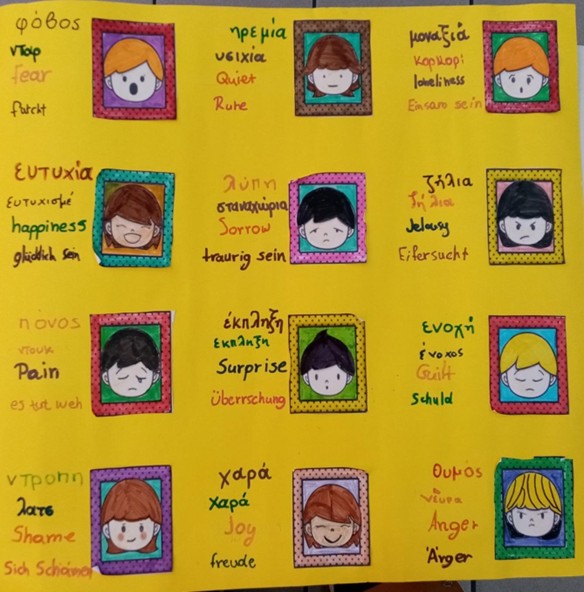 φόβος
νταρ
Fear
furcht
ηρεμία
υσιχία
Quiet
Ruhe
μοναξιά
κορκορί
loneliness
Einsam sein
ευτυχία
ευτυχισμέ
happiness
glücklich sein
λύπη
σταναχώρια
Sorrow
traurig sein
ζήλια
ζήλια
Jelousy
Eifersucht
πόνος
ντουκ
Pain
es tut weh
έκπληξη
έκπληξη
Surprise
Überrschung
ενοχή
ένοχος
Guilt
Schuld
ντροπη
λατς
Shame
Sich Schämen
χαρά
χαρά
Joy
freude
Θυμός
νεύρα
Anger
Ärger